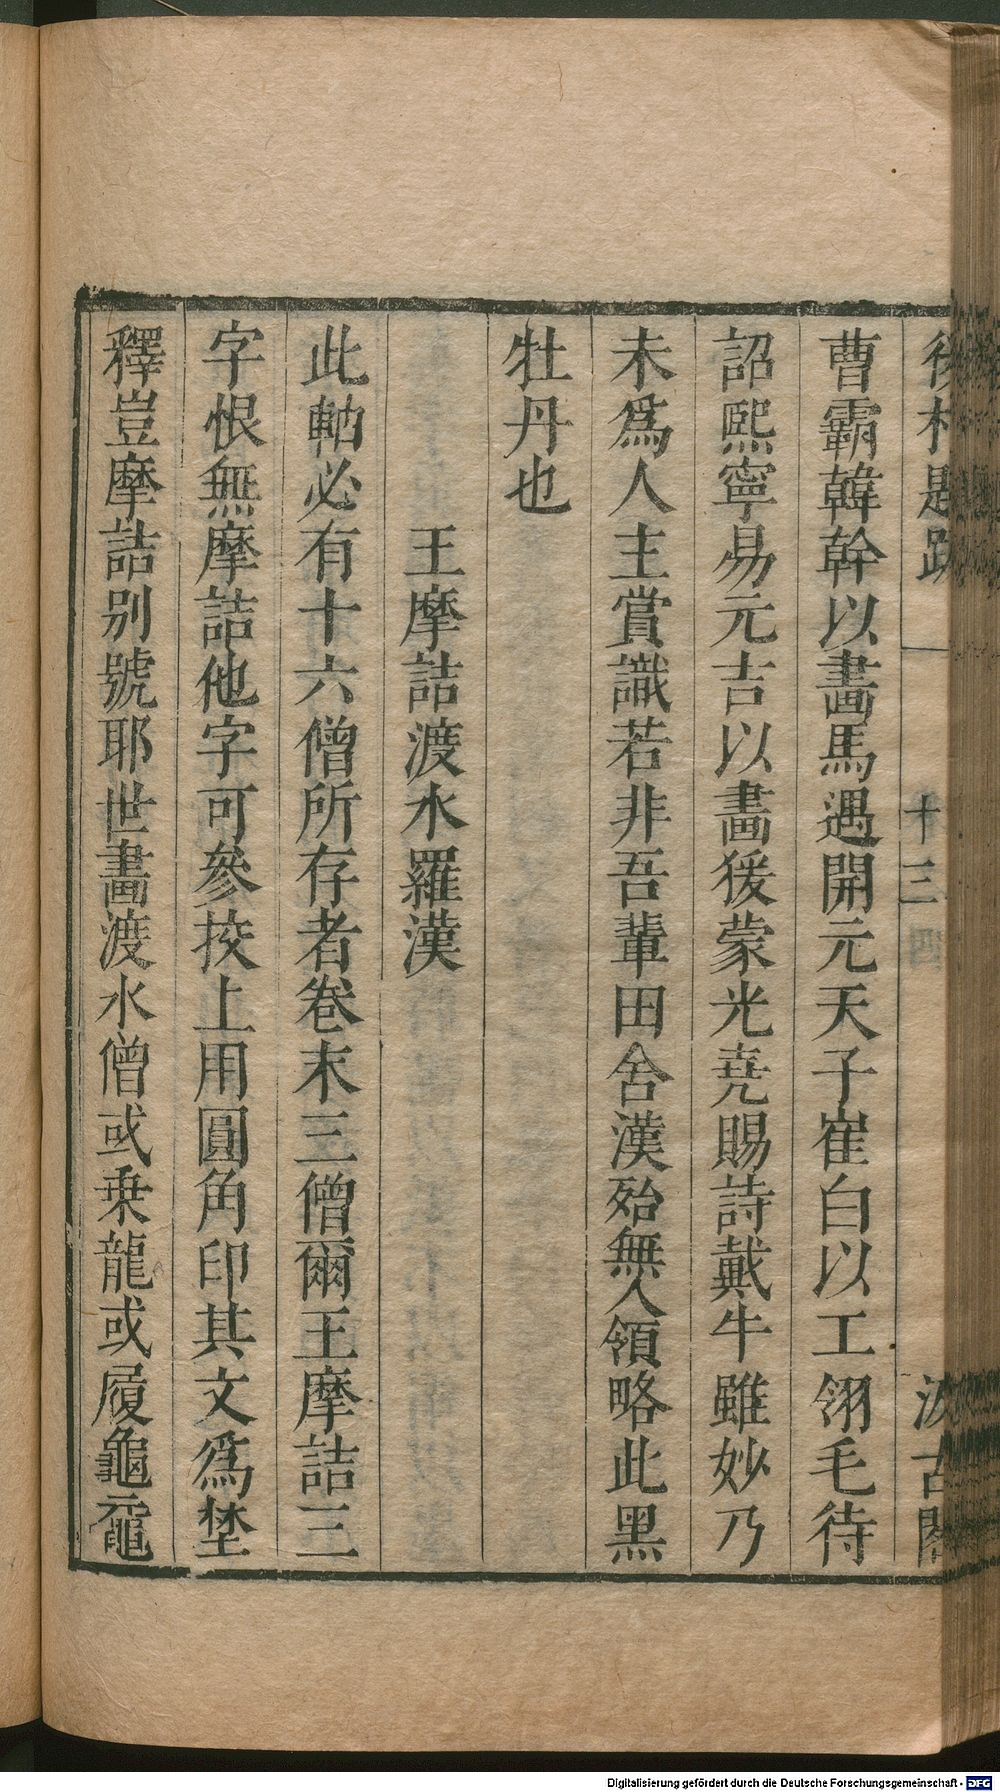 後村題跋 一 十三 汲古閣
曹霸韓幹以畫馬遇開元天子崔白以工翎毛待
詔熙寧易元吉以畫猨蒙光堯賜詩戴牛雖妙乃
未爲人主賞識若非吾輩田舍漢殆無人領略此黑
牡丹也
王摩詰渡水羅漢
此軸必有十六僧所存者卷末三僧爾王摩詰三
字恨無摩詰他字可參挍上用圓角印其文爲埜
釋豈摩詰别號耶世畫渡水僧或乗龍或履龜黿
Digitalisierung gefördert durch die Deutsche Forschungsgemeinschaft - DFG